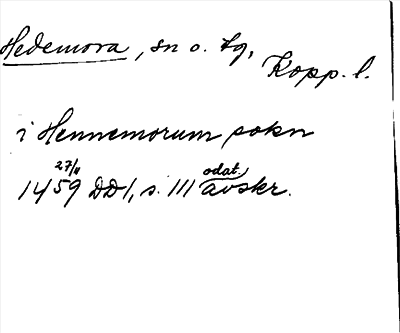 Hedemora, sn o. tg,
Kopp. l.
i Hennemorum sokn
27/11 odat.
1459 DD1, s. 111 avskr.